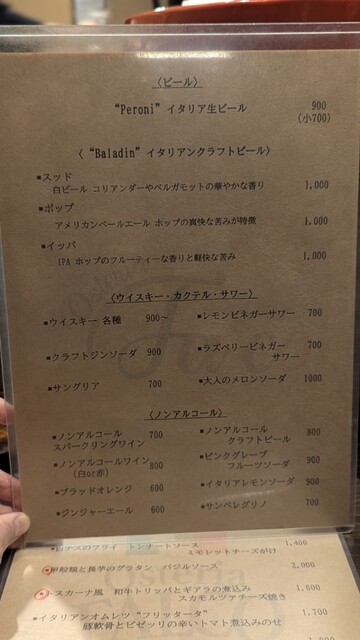 〈ビール〉
“Peroni” イタリア生ビール 900
(小700)
〈 “Baladin” イタリアンクラフトビール〉
▪スッド
白ビール コリアンダーやベルガモットの華やかな香り 1,000
▪ポップ
アメリカンペールエール ホップの爽快な苦みが特徴 1,000
▪イッパ
IPA ホップのフルーティーな香りと軽快な苦み 1,000
〈ウイスキー・カクテル・サワー〉
▪ウイスキー 各種 900～
▪レモンビネガーサワー 700
▪クラフトジンソーダ 900
▪ラズベリービネガー 700
サワー
▪サングリア 700
▪大人のメロンソーダ 1000
〈ノンアルコール〉
▪ノンアルコール 700
スパークリングワイン
▪ノンアルコール 800
クラフトビール
▪ノンアルコールワイン 800
(白or赤)
▪ピンクグレープ 900
フルーツソーダ
▪ブラッドオレンジ 600
▪イタリアレモンソーダ 900
▪ジンジャーエール 600
▪サンペレグリノ 700
のフライ トンナートソース 1,400
ミモレットチーズがけ
甲殻類と長芋のグラタン バジルソース 2,000
▪トスカーナ風 和牛トリッパとギアラの煮込み 1,600
スカモルツァチーズ焼き
▪イタリアンオムレツ “フリッタータ” 1,700
豚軟骨とピゼッリの辛いトマト煮込みのせ